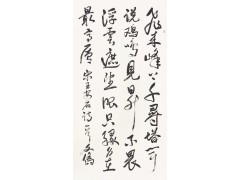 飛來峰上千尋塔聞
說鷄鳴見日昇不畏
浮雲遮望眼只緣身在
最高層 宋王安石詩